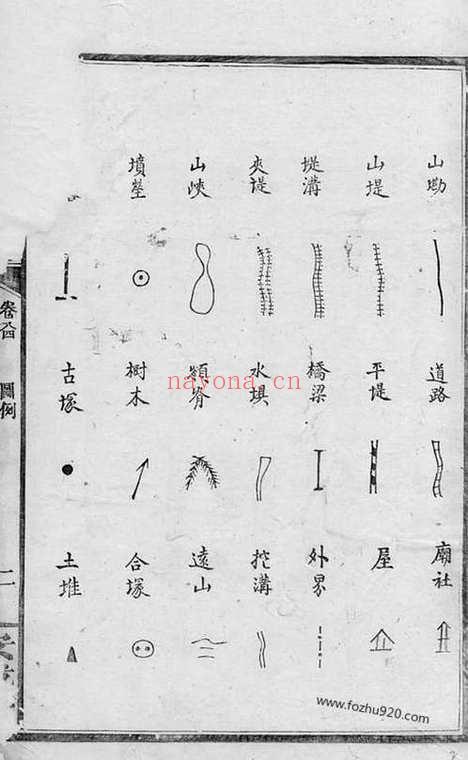 山坳
山堤
堤溝
夾堤
山峽
墳塋
道路
平堤
橋梁
水垻
樹木
古塚
廟社
屋
外界
挖溝
遠山
合塚
土堆
卷首 圖例
二
nayona.cn
www.fozhu920.com